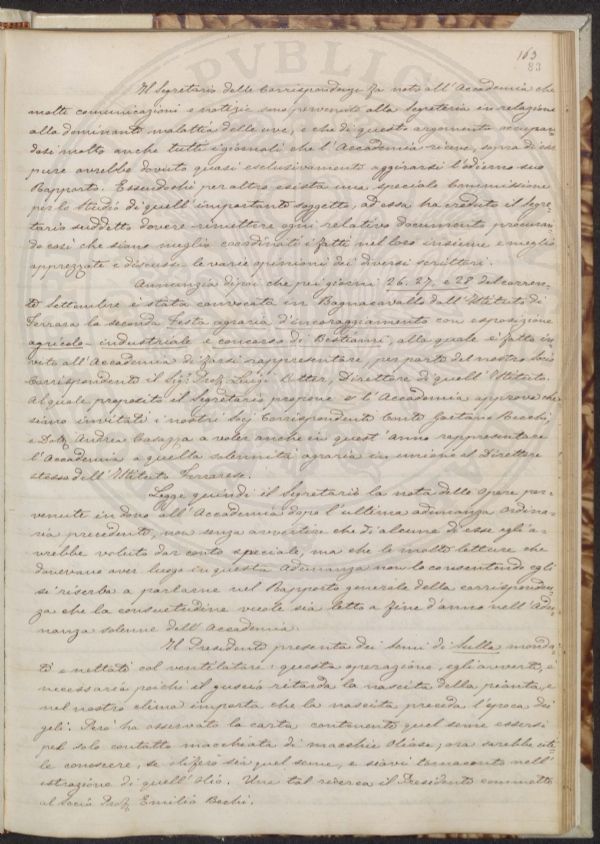 163
83
Il Segretario delle Corrispondenze fa noto all'Accademia che
molte comunicazioni e notizie sono pervenute alla Segreteria in relazione
alla dominante malattia delle uve, e che di questo argomento occupan
dosi molto anche tutti i giornali che l'Accademia riceve, sopra di es
pure avrebbe dovuto quasi esclusivamente aggirarsi l'odierno suo
Rapporto. Essendochè per altro esista una speciale Commissione
per lo studio di quell'importante soggetto, ad essa ha creduto il Segre-
tario suddetto dovere rimettere ogni relativo documento procuran
do così che siano meglio coordinati i fatti nel loro insieme e meglio
apprezzate e discusse le varie opinioni dei diversi scrittori.
Annunzia dipoi che pei giorni 26. 27. e 28 del corren-
te Settembre è stata convocata in Bagnacavallo dall'Istituto di
Ferrara la seconda Festa agraria d'incoraggiamento con esposizione
agricolo-industriale e concorso di Bestiami, alla quale è fatto in
vito all'Accademia di farsi rappresentare per parte del nostro Socio
Corrispondente il Sig. Prof. Luigi Botter, Direttore di quell'Istituto.
Al quale proposito il Segretario propone e l'Accademia approva che
siano invitati i nostri Socj Corrispondenti Conte Gaetano Recchi,
e Dott. Andrea Casazza a voler anche in quest'anno rappresentare
l'Accademia a quella solennità agraria in unione al Direttore
stesso dell'Istituto Ferrarese.
Legge quindi il Segretario la nota delle opere per-
venute in dono all'Accademia dopo l'ultima adunanza ordina-
ria precedente, non senza avvertire che di alcune di esse egli a-
vrebbe voluto dar conto speciale, ma che le molte letture che
dovevano aver luogo in questa Adunanza non lo consentendo egli
si riserba a parlarne nel Rapporto generale della corrisponden-
za che la consuetudine vuole sia letto a fine d'anno nell'Adu-
nanza solenne dell'Accademia.
Il Presidente presenta dei semi di Sulla monda
ti e nettati col ventilatore: questa operazione, egli avverte, è
necessaria poichè il guscio ritarda la nascita della pianta, e
nel nostro clima importa che la nascita preceda l'epoca dei
geli. Però ha osservato la carta contenente quel seme essersi
pel solo contatto macchiata di macchie oliose; ora sarebbe uti-
le conoscere, se oleifero sia quel seme, e siavi tornaconto nell'
estrazione di quell'olio. Una tal ricerca il Presidente commette
al Socio Prof. Emilio Bechi.